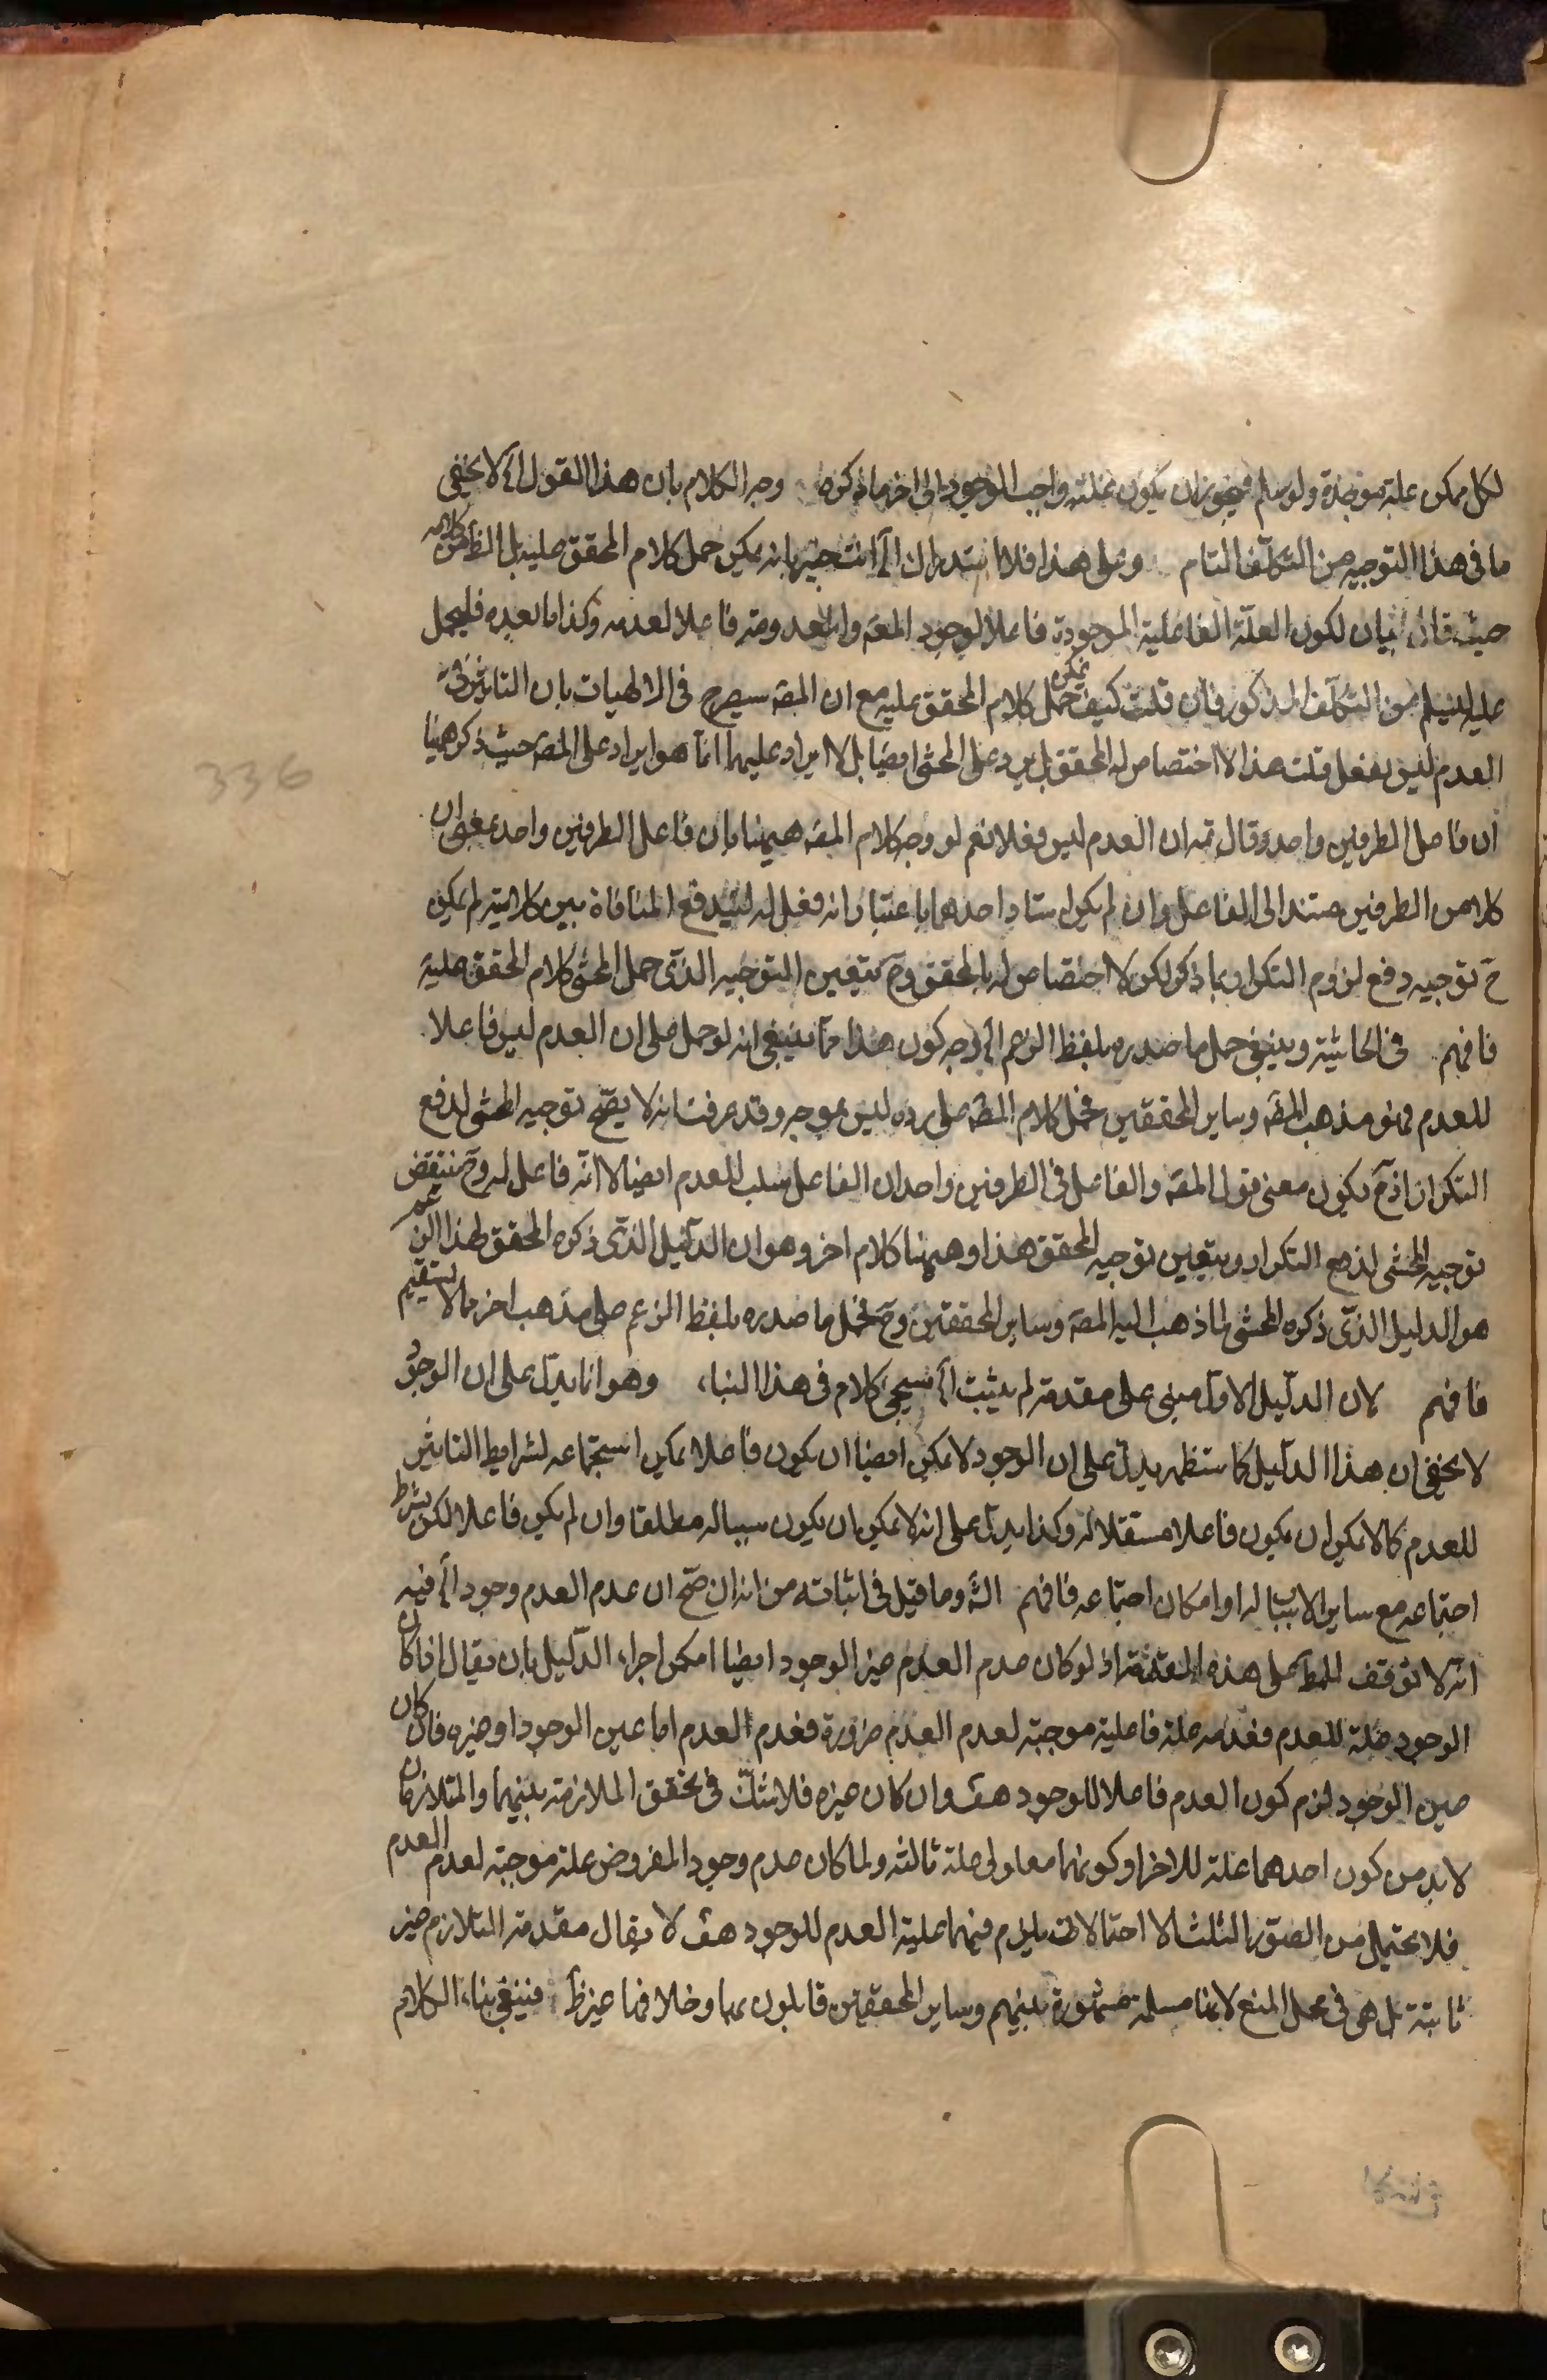 لكل ممكن علة موجدة ولو سلم فيجوز ان يكون علته واجب الوجود الى اخر ما ذكره وجه الكلام بان هذا القول اه لا يخفى
ما فى هذا التوجيه من التكلّف التام وعلى هذا فلا استدراك اه انت خبير بانه يمكن حمل كلام المحقق عليه بل الظ من كلامه
حيث قال بيان لكون العلّة الفاعلية الموجودة فاعلا لوجود المعه والمعدومة فاعلا لعدمه وكذا ما بعده فليحمل
عليه ليسلم من التكلّف المذكور فان قلت كيف يمكن حمل كلام المحقق عليه مع ان المصه سيصرح فى الالهيات بان التاثير فى
العدم ليس بفعل قلت هذا لا اختصاص له بالمحقق بل يرد على المحشى ايضا بل لا ايراد عليهما انما هو ايراد على المصه حيث ذكر ههنا
ان فاعل الطرفين واحد وقال ثمه ان العدم ليس فعلا نعم لو وجه كلام المصه ههنا بان فاعل الطرفين واحد بمعنى ان
كلا من الطرفين مستند الى الفاعل وان لم يكن استناد احدهما باعتبار انه فعل له ليندفع المنافاة بين كلاميه لم يكن
ح توجيه دفع لزوم التكرار بما ذكر لكن لا اختصاص له بالمحقق وح يتعين التوجيه الذى حمل المحشى كلام المحقق عليه
فافهم فى الحاشية وينبغى حمل ما صدره بلفظ الزعم اه وجه كون هذا مما ينبغى انه لو حمل على ان العدم ليس فاعلا
للعدم فهو مذهب المصه وساير المحققين فحمل كلام المصه على رده ليس بموجه وقد عرفت انه لا يصّح توجيه المحشى لدفع
التكرار اذ ح يكون معنى قول المصه والفاعل فى الطرفين واحد ان الفاعل سلب للعدم ايضا لا انّه فاعل له وح ينتقض
توجيه المحشى لدفع التكرار ويتعين توجيه المحقق هذا وههنا كلام اخر وهو ان الدليل الذى ذكره المحقق لهذا الزعم
هو الدليل الذى ذكره المحشى لما ذهب اليه المصه وساير المحققين وح فحمل ما صدره بلفظ الزعم على مذهب اخر مما لا يستقيم
فافهم لان الدليل الاول مبنى على مقدمة لم يثبت اه سيجئ كلام فى هذا البناء وهو انما يدل على ان الوجود
لا يخفى ان هذا الدليل كما ستظهر يدل على ان الوجود لا يمكن ايضا ان يكون فاعلا يمكن استجماعه لشرايط التاثير
للعدم كما لا يمكن ان يكون فاعلا مستقلا له وكذا يدل على انه لا يمكن ان يكون سببا له مطلقا وان لم يكن فاعلا لكن بشرط
اجتماعه مع ساير الاسباب له او امكان اجتماعه فافهم وما قيل فى اثباته من انه ان صّح ان عدم العدم وجود اه فيه
انّه لا توقف للمط على هذه المقدمة اذ لو كان عدم العدم غير الوجود ايضا امكن اجراء الدليل بان يقال اذا كان
الوجود علة للعدم فعدمه علة فاعلية موجبة لعدم العدم ضرورة فعدم العدم اما عين الوجود او غيره فان كان
عين الوجود لزم كون العدم فاعلا للوجود هف وان كان غيره فلا شكّ فى تحقق الملازمة بينهما والمتلازمان
لا بد من كون احدهما علة للاخر او كونهما معلولى علة ثالثة ولما كان عدم وجود المفروض علة موجبة لعدم العدم
فلا يحتمل من الصور الثلث الا احتمالات يلزم فيهما علية العدم للوجود هف لا يقال مقدمة التلازم غير
ثابتة بل هى فى محل المنع لانها مسلمة مشهورة بينهم وساير المحققين قايلون بها وخلافها غير ظ فينبغى بناء الكلام
336